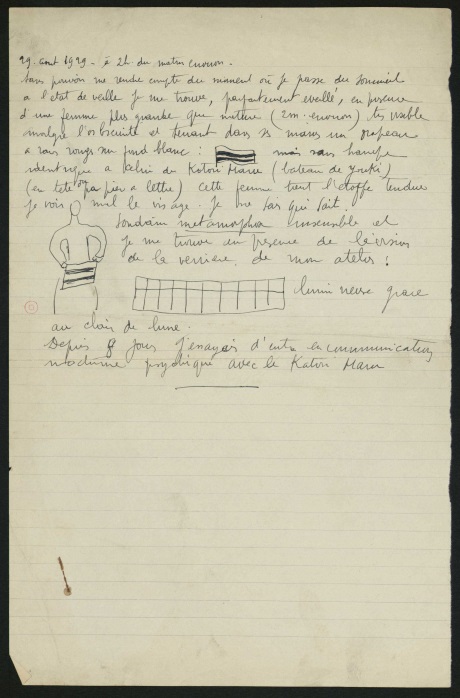 29. aout 1929 - à 2h du matin environ.
Sans pouvoir me rendre compte du moment où je passe du sommeil
a l'etat de veille je me trouve, parfaitement eveillé, en presence
d'une femme plus grande que nature (2m. environ) très visible
malgré l'obscurité et tenant dans ses mains un drapeau
a raies rouges sur fond blanc : mais sans hampe
identique a celui du Katori Maru (bateau de Youki)
(en tete du papier a lettre) cette femme tient l'étoffe tendue
je vois mal le visage. je ne sais qui c'est.
Soudain metamorphose insensible et
je me trouve en presence de
de la verriere de mon atelier :
lumineuse grace
au clair de lune.
Depuis 8 jours j'essayais d'entrer en communication
nocturne psychique avec le Katori Maru